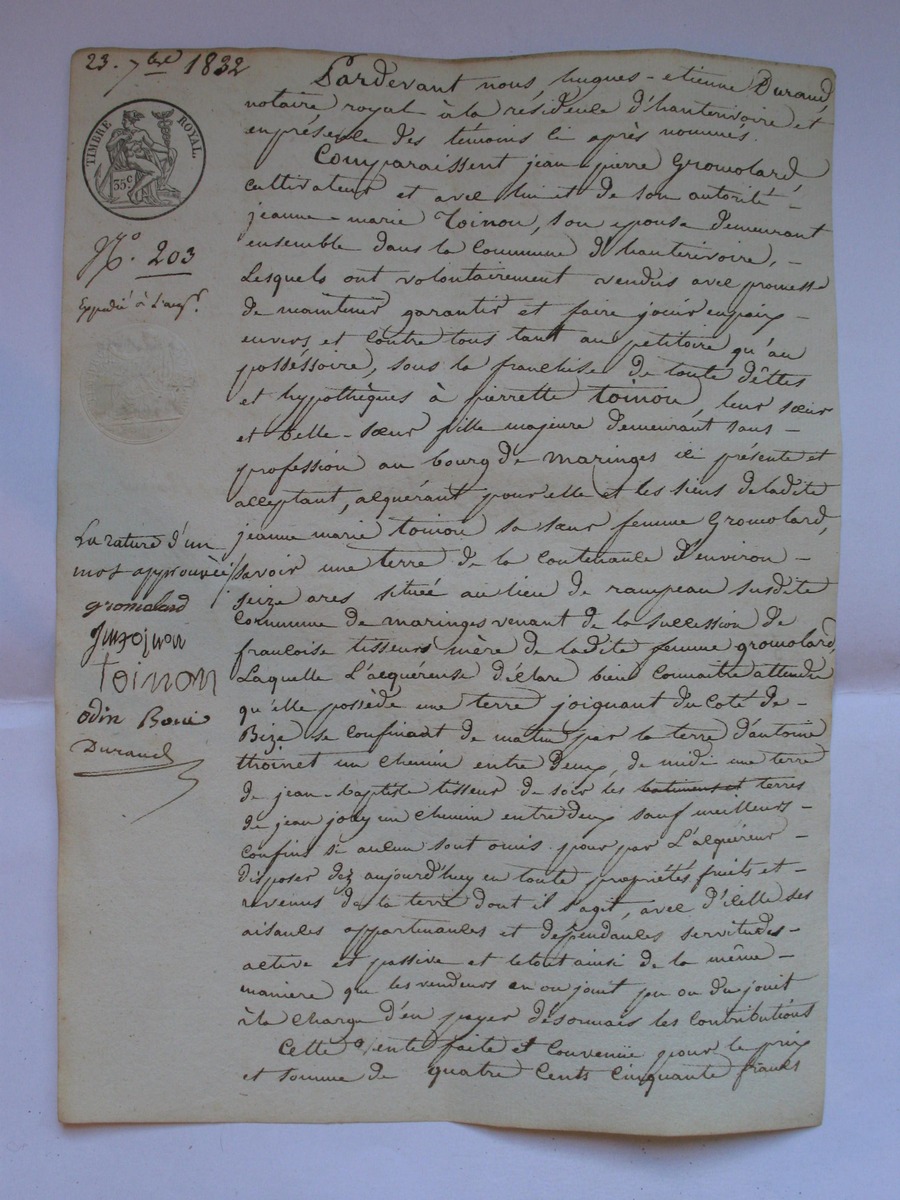 23. 7bre 1832
TIMBRE ROYAL.
35c
No. 203
Expedié à
La rature d'un
mot approuvée
gromolard
Toinon
odin
Durand
Pardevant nous hugues-etienne Durand
notaire royal à la résidence d'hauterivoire et
en présence des témoins ci après nommés.
Comparaissent jean pierre Gromolard
cultivateur et avec lui et de son autorité -
jeanne-marie Toinon, son epouse demeurant
ensemble dans la Commune d'hauterivoire, -
Lesquels ont volontairement vendus avec promesse
de maintenir garantir et faire jouir en paix -
envers et contre tous tant au petitoire qu'au
posséssoire, sous la franchise de toute dêttes
et hypothèques à pierrette toinon, leur sœur
et belle-sœur fille majeure demeurant sans -
profession au bourg de maringes ici présente et
acceptant, acquérant pour elle et les siens de ladite
jeanne marie toinon sa sœur femme Gromolard,
savoir une terre de la contenance d'environ -
seize ares située au lieu de rampeau susdite
commune de maringes venant de la succession de
francoise tisseurs mère de ladite femme gromolard,
Laquelle l'acquéreuse déclare bien connaitre attendu
qu'elle possède une terre joignant du coté de -
Bize se confinant de matin par la terre d'antoine
thoinet un chemin entre deux, de midi une terre
de jean-baptiste tisseur de soir les batiments et terres
de jean joly un chemin entre deux sauf meilleurs -
confins si aucun sont omis pour par L'acquéreur -
disposer dez aujourd'huy en toute propriétés fruits et -
revenus de la terre dont il s'agit, avec d'icelle ses
aisances appartenances et dependances servitudes -
active et passive et le tout ainsi de la même -
maniere que les vendeurs en on jouit pu ou du jouit
à la charge d'en payer désormais les contributions
Cette vente faite et convenüe pour le prix
et somme de quatre cents cinquante francs